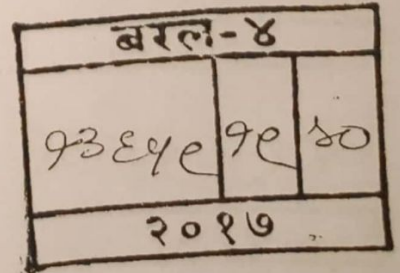 बरल-४
१३६५९ १९ ४०
२०१७